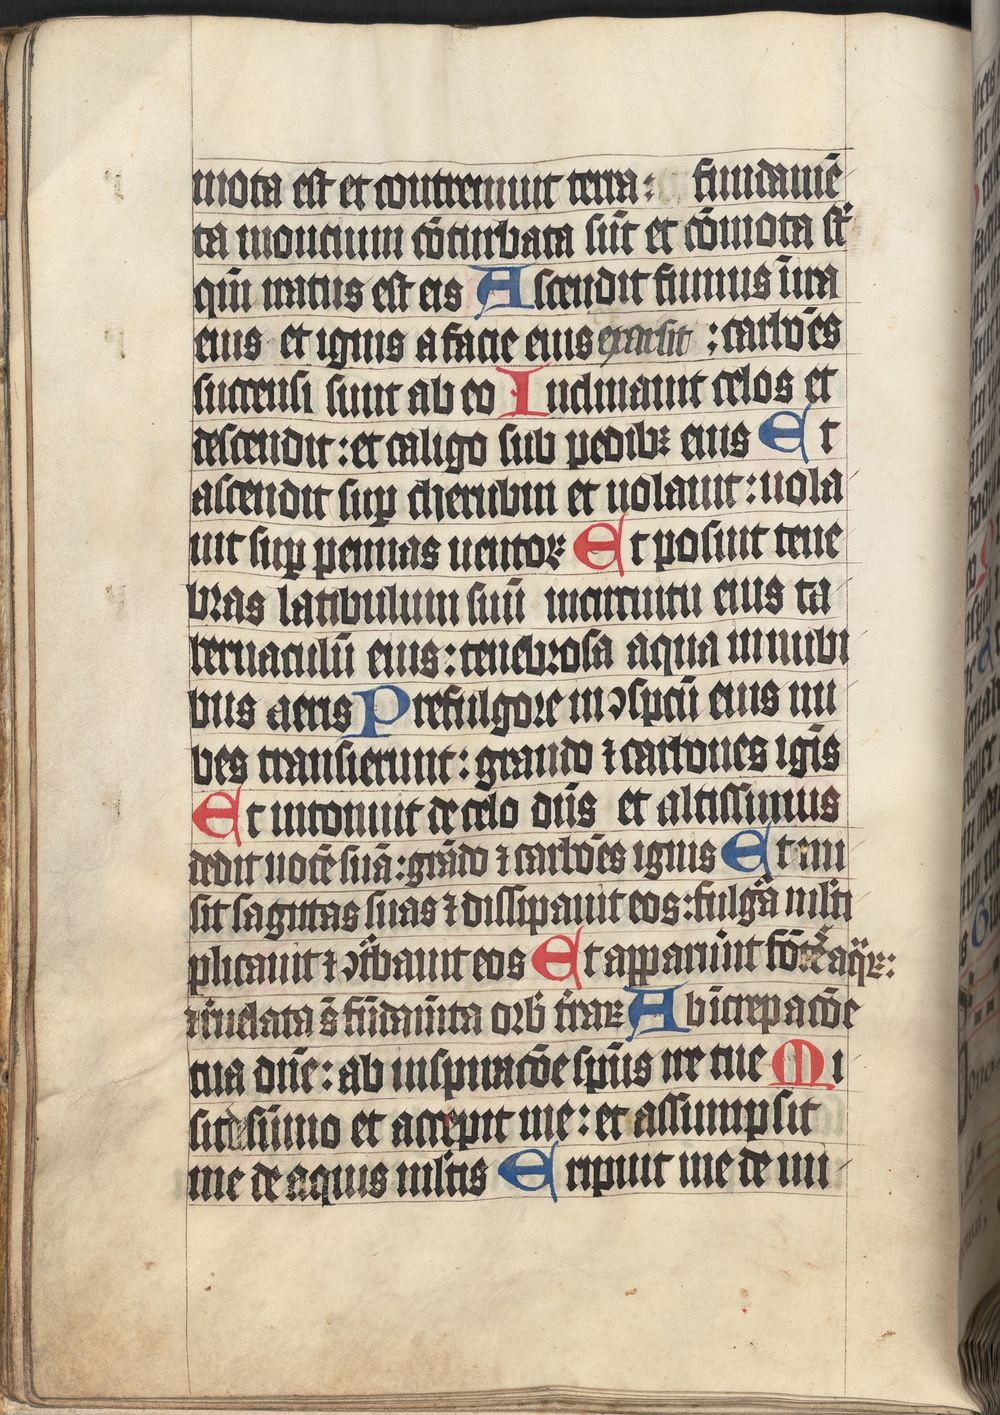 mota est et contremuit terra: fundamē
ta moncium cōturbata sūt et cōmota st̄
qm̄ iratus est eis Ascendit fumus ī ira
eius et ignis a facie eius exarsit : carbōes
succensi sunt ab eo Inclinauit celos et
descendit: et caligo sub pedibꝫ eius Et
ascendit suꝑ cherubin et uolauit: uola
uit suꝑ pennas uentoꝝ Et posuit tene
bras latibulum suū incircuitu eius ta
bernaculū eius: tenebrosa aqua innubi
bus aeris Prefulgore inↄspcū eius nu
bes transierunt: grando ⁊ carbones igīs
Et intonuit de celo dn̄s et altissimus
dedit uocē suā: grādo ⁊ carbōes ignis Et mi
sit sagittas suas ⁊ dissipauit eos: fulgᷓa mlti
plicauit ⁊ ↄtᷓbauit eos Et apparuīnt fōtēs aqᷓꝝ:
⁊ rēuelata s̄ fūdamīta orb̄ tᷓraꝝ Ab īcrepacōe
tua dn̄e: ab inspiracōe spūs ire tue Mi
sit desūmo et accepit me: et assumpsit
me de aquis mltis Eripuit me de ini